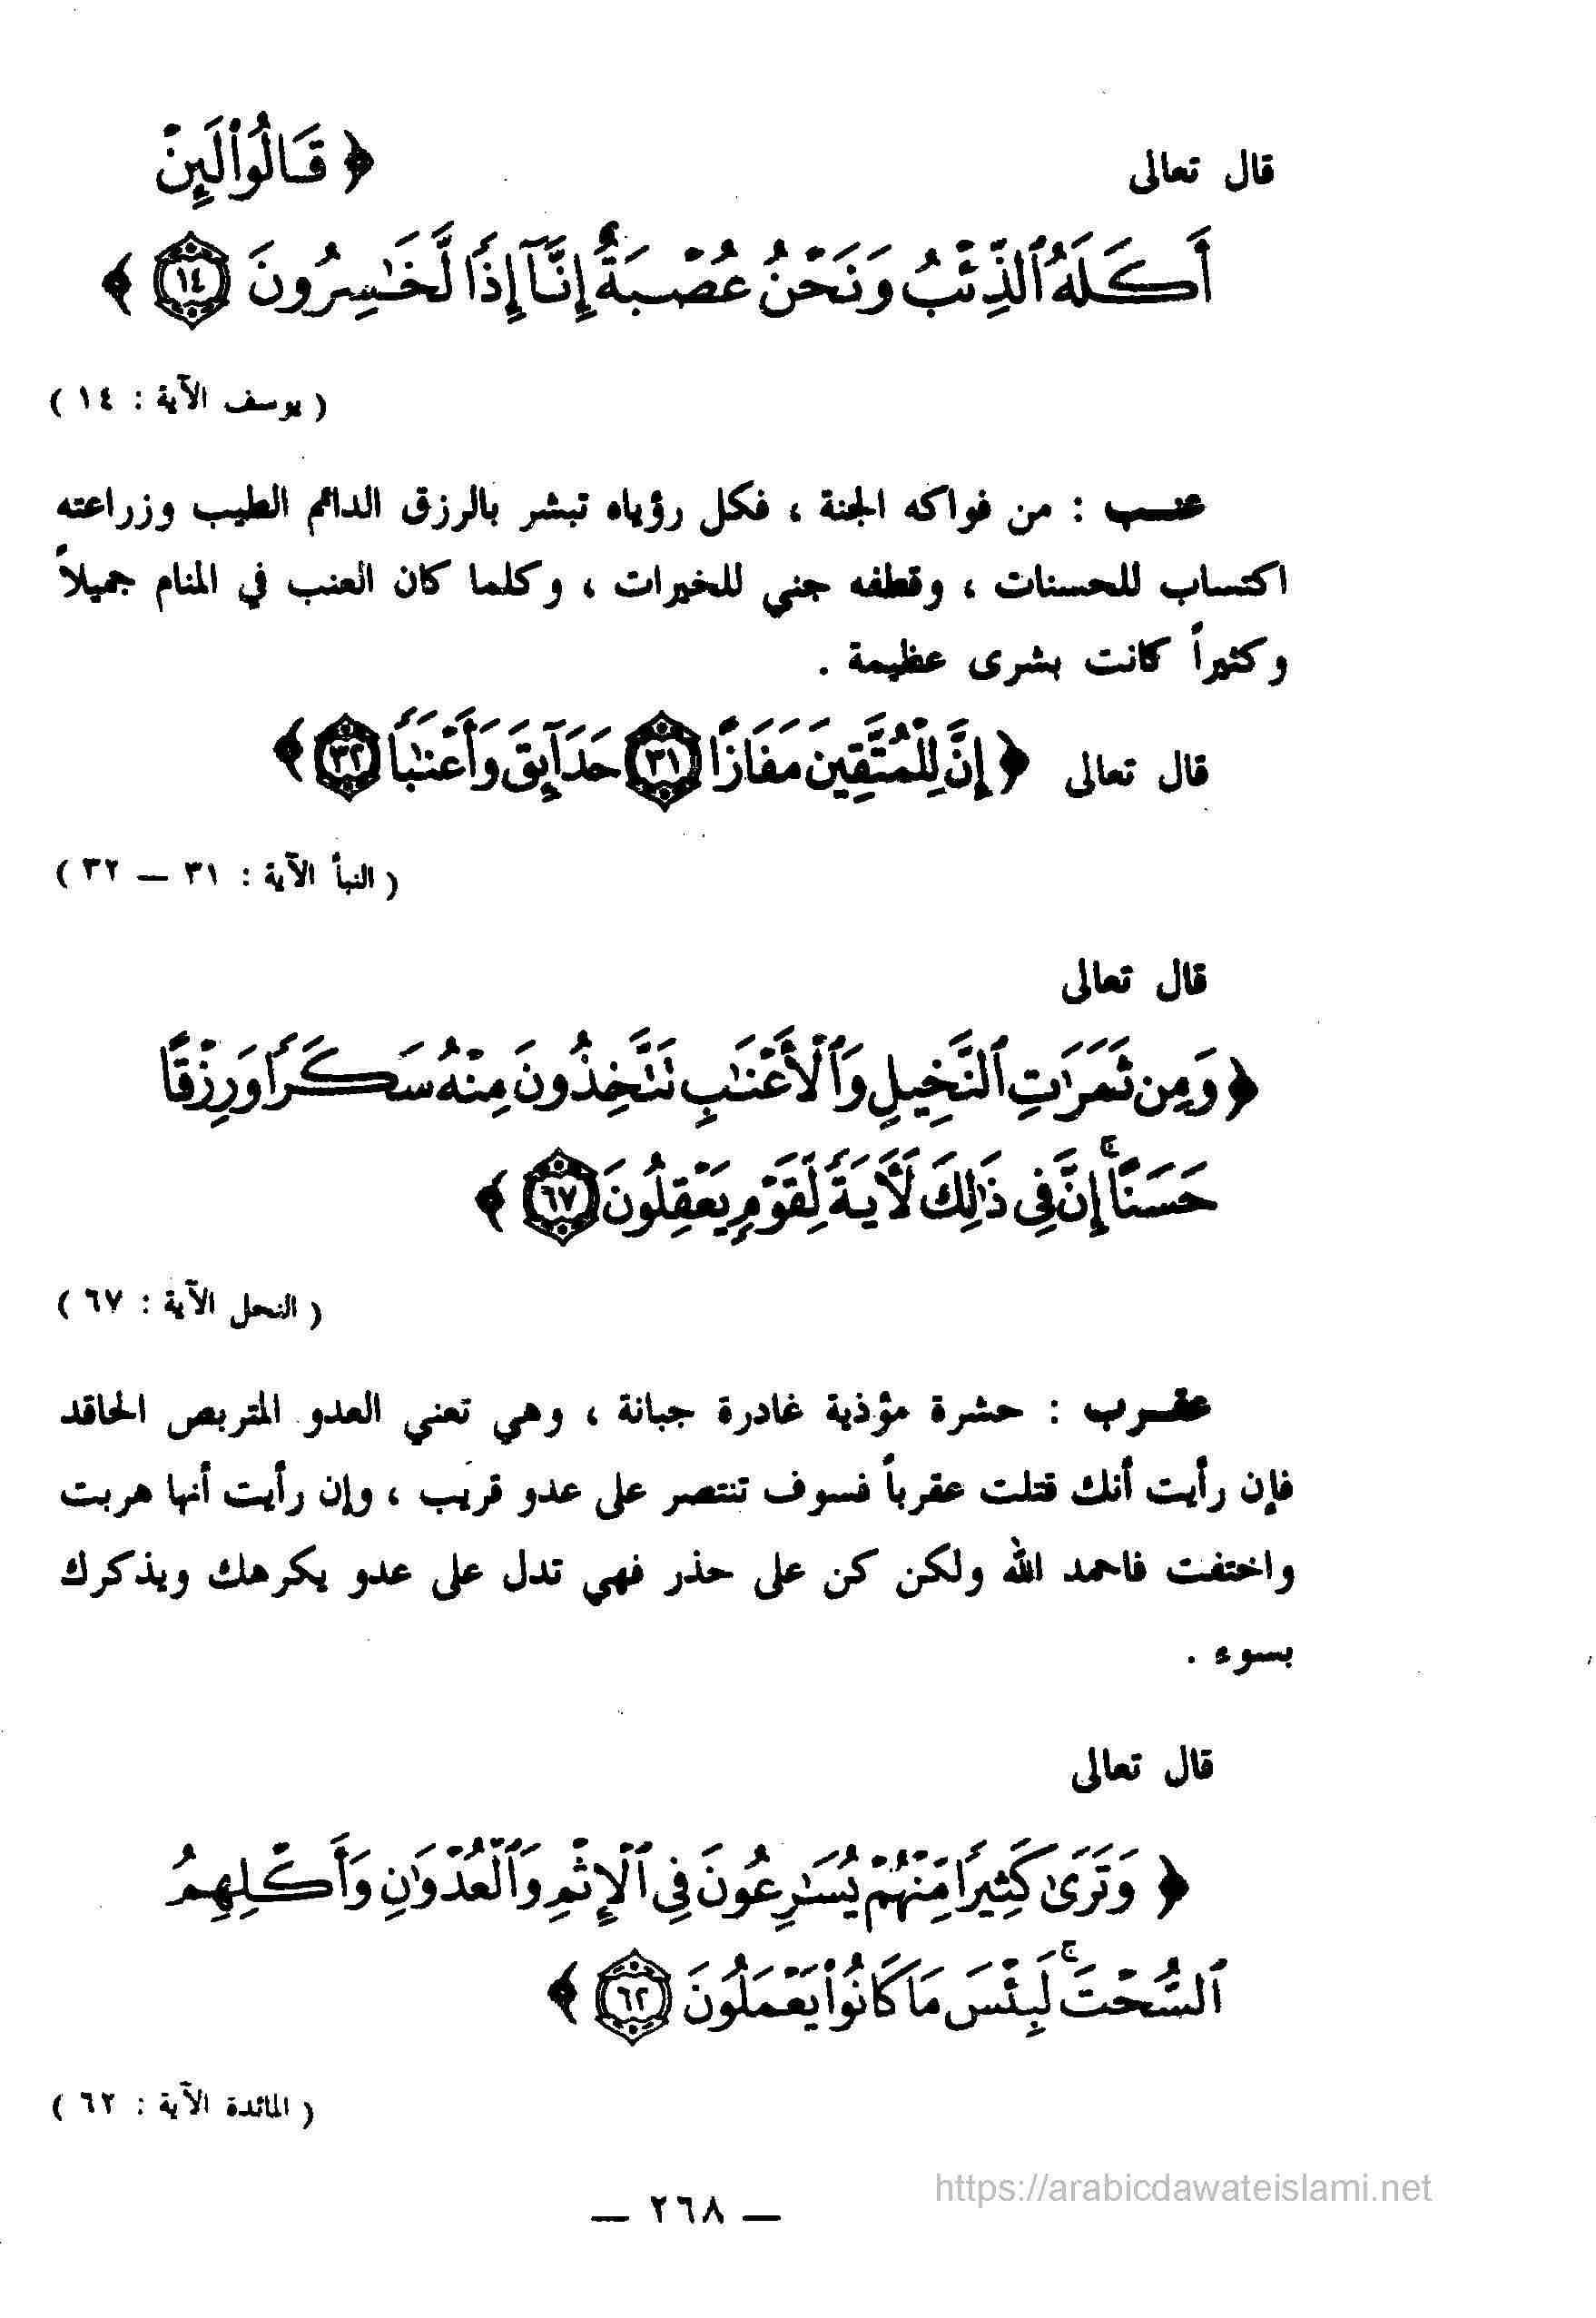 قال تعالى ﴿ قَالُوا۟ لَئِنْ
أَكَلَهُ ٱلذِّئْبُ وَنَحْنُ عُصْبَةٌ إِنَّآ إِذًا لَّخَٰسِرُونَ ١٤ ﴾
( يوسف الآية : ١٤ )
عنب : من فواكه الجنة ، فكل رؤياه تبشر بالرزق الدائم الطيب وزراعته
اكتساب للحسنات ، وقطفه جني للخيرات ، وكلما كان العنب في المنام جميلاً
وكثيراً كانت بشرى عظيمة .
قال تعالى ﴿ إِنَّ لِلْمُتَّقِينَ مَفَازًا ٣١ حَدَآئِقَ وَأَعْنَٰبًا ٣٢ ﴾
( النبأ الآية : ٣١ – ٣٢ )
قال تعالى
﴿ وَمِن ثَمَرَٰتِ ٱلنَّخِيلِ وَٱلْأَعْنَٰبِ تَتَّخِذُونَ مِنْهُ سَكَرًا وَرِزْقًا
حَسَنًا ۚ إِنَّ فِى ذَٰلِكَ لَءَايَةً لِّقَوْمٍ يَعْقِلُونَ ٦٧ ﴾
( النحل الآية : ٦٧ )
عقرب : حشرة مؤذية غادرة جبانة ، وهي تعني العدو المتربص الحاقد
فإن رأيت أنك قتلت عقرباً فسوف تنتصر على عدو قريب ، وإن رأيت أنها هربت
واختفت فاحمد الله ولكن كن على حذر فهي تدل على عدو يكرهك ويذكرك
بسوء .
قال تعالى
﴿ وَتَرَىٰ كَثِيرًا مِّنْهُمْ يُسَٰرِعُونَ فِى ٱلْإِثْمِ وَٱلْعُدْوَٰنِ وَأَكْلِهِمُ
ٱلسُّحْتَ ۚ لَبِئْسَ مَا كَانُوا۟ يَعْمَلُونَ ٦٢ ﴾
( المائدة الآية : ٦٢ )
https://arabicdawateislami.net
— ٢٦٨ —